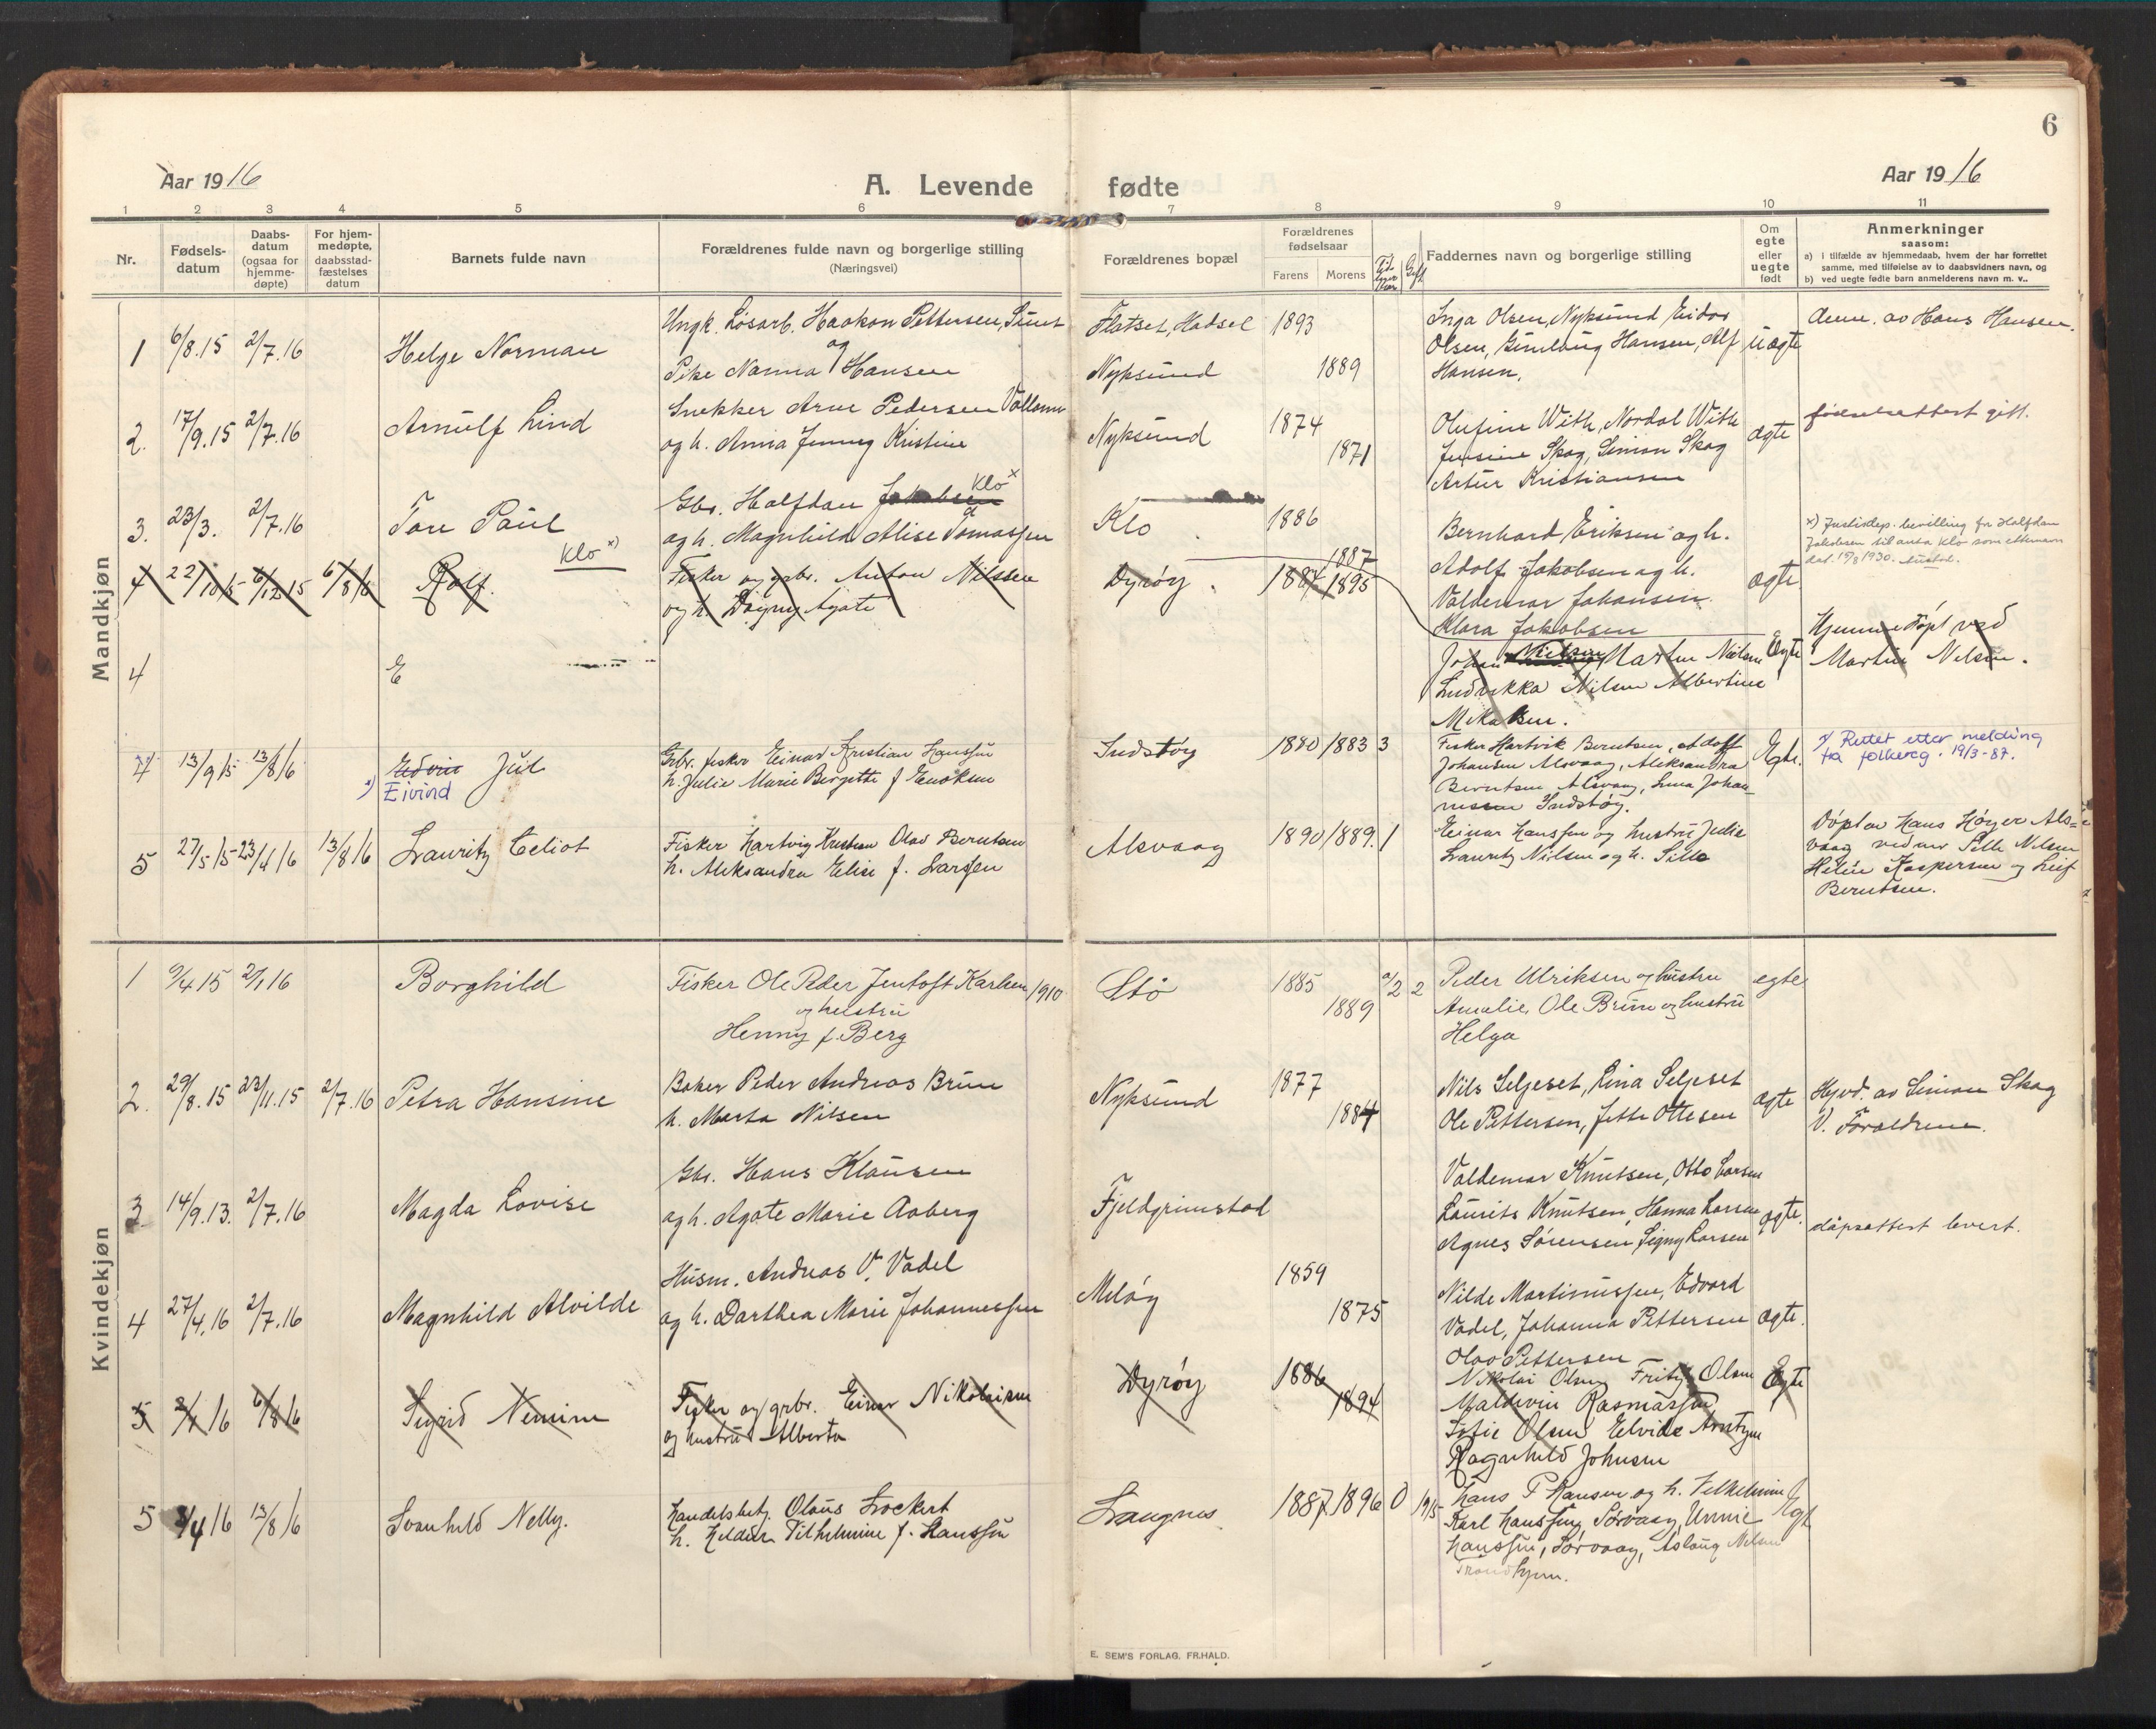 6
Aar 1916
A. Levende fødte
Aar 1916
1 2 3 4 5 6 7 8 9 10 11
Nr.
Fødsels-
datum
Daabs-
datum
(ogsaa for
hjemme-
døpte)
For hjem-
medøpte,
daabsstad-
fæstelses
datum
Barnets fulde navn
Forældrenes fulde navn og borgerlige stilling
(Næringsvei)
Forældrenes bopæl
Forældrenes
fødselsaar
Farens Morens
Faddernes navn og borgerlige stilling
Om
egte
eller
uegte
født
Anmerkninger
saasom:
a) i tilfælde av hjemmedaab, hvem der har forrettet
samme, med tilføielse av to daabsvidners navn, og
b) ved uegte fødte barn anmelderens navn m. v..
Mandkjøn
1 6/8.15 2/7.16 Helge Norman
Ungk. Løsarb. Haakon Pettersen,
og
Pike Nanna Hansen
Flatset, Hadsel 1893
Nyksund 1889
Inga Olsen, Nyksund Eidar
Olsen, Hansen, Alf
Hansen.
uægte
Anm. av Hans Hansen.
2. 17/9.15 2/7.16 Arnulf Lind
Snekker Arne Pedersen
og h. Anna Jenny Kristine
Nyksund 1874
1871
Olufine With, Nordal With
Jensine Skog, Simon Skog
Artur Kristiansen
ægte
fødselsattest gitt.
3. 23/3. 2/7.16 Tore Paul
Klo x)
Gbr. Halfdan Jakobsen Klo x
og h. Magnhild Alise Tomassen
Klo 1886
1887
Bernhard Eriksen og h.
Adolf Jakobsen og h.
Valdemar Johansen
Klara Jakobsen
ægte
x) Justisdep. bevilling for Halfdan
Jakobsen til anta Klo som etternavn
dat. 15/8 1930.
4 22/10 15 6/12 15 6/8 16 Rolf.
Fisker og grbr. Anton Nilssen
og h. Dagny Agate
Dyrøy 1887 1895
Johan Nielsen, Martin Nielsen
Ludvikka Nilsen Albertine
Mikalsen.
Egte
Hjemmedøpt ved
Martin Nilsen.
4 E
4 13/9 15 13/8 16 Edvin Jul
x) Eivind
Grbr. fisker Einar Kristian Hanssen
h. Julie Marie Bergitte f Enoksen
Indstøy 1880 1883 3
Fisker Hartvik Berntsen, Adolf
Johansen Alsvaag, Aleksandra
Berntsen, Alsvaag, Johan-
nessen Indstøy.
Egte.
x) Rettet etter melding
fra folkereg. 19/3-87.
5 27/5 15 23/4 16 13/8 16 Lauritz Celiot
Fisker Hartvig Kristian Olav Berntsen
h. Aleksandra Elise f. Larssen
Alsvaag 1890 1889. 1
Einar Hanssen og hustru Julie
Lauritz Nielsen og h. Sille
Døpt av Hans Høyer Als-
vaag vidner Sille Nilsen
Kaspersen og Leif
Berntsen.
Kvindekjøn
1 9/4 15 2/1 16 Borghild
Fisker Ole Peder Jentoft Karlsen 1910
og hustru
Henny f. Berg
Stø 1885
1889 2 2
Peder Ulriksen og hustru
Amalie, Ole Bruun og hustru
Helga
egte
2. 29/8.15 23/11.15 2/7.16 Petra Hansine
Baker Peder Andreas Bruun
h. Marta Nilsen
Nyksund 1877
1884
Nils Seljeset, Lina Seljeset
Ole Pettersen, Jette Ottesen
ægte
Hjvd. av Simon Skog
V. Forældrene.
3 14/9.13. 2/7.16 Magda Lovise
Gbr. Hans Klausen
og h. Agate Marie Aaberg
Fjeldgrimstad
Valdemar Knutsen, Otto Larsen
Laurits Knutsen, Hanna Larsen
Agnes Sørensen, Signy Larsen
ægte.
dåpsattest levert.
4 27/4.16 2/7.16 Magnhild Alvilde
Husm. Andreas V. Vadel
og h. Darthea Marie Johannessen
Meløy 1859
1875
Nilde Martinussen, Edvard
Vadel, Johanna Pettersen
Olav Pettersen
ægte.
5 16 6/8 16 Sigrid Nemine
Fisker og grbr. Einar Nikolaisen
og hustru Alberta
Dyrøy 1886
1894
Nikolai Olsen, Fritz Olsen
Maldevin Rasmussen
Sofie Olsen, Elvide Arntzen
Ragnhild Johnsen
Egte
5 4 16 13/8 16 Svanhild Nelly.
Handelsbetj. Olaus Lockert
h. Hildur Vilhelmine f. Hanssen
Langnes 1887. 1896 0 19/5
Hans P Hansen og h. Vilhelmine
Karl Hanssen, Sørvaag, Unnie
Hanssen, Sørvaag, Aslaug Nilsen
Trondhjem.
Egte
E. SEM'S FORLAG, FR.HALD.